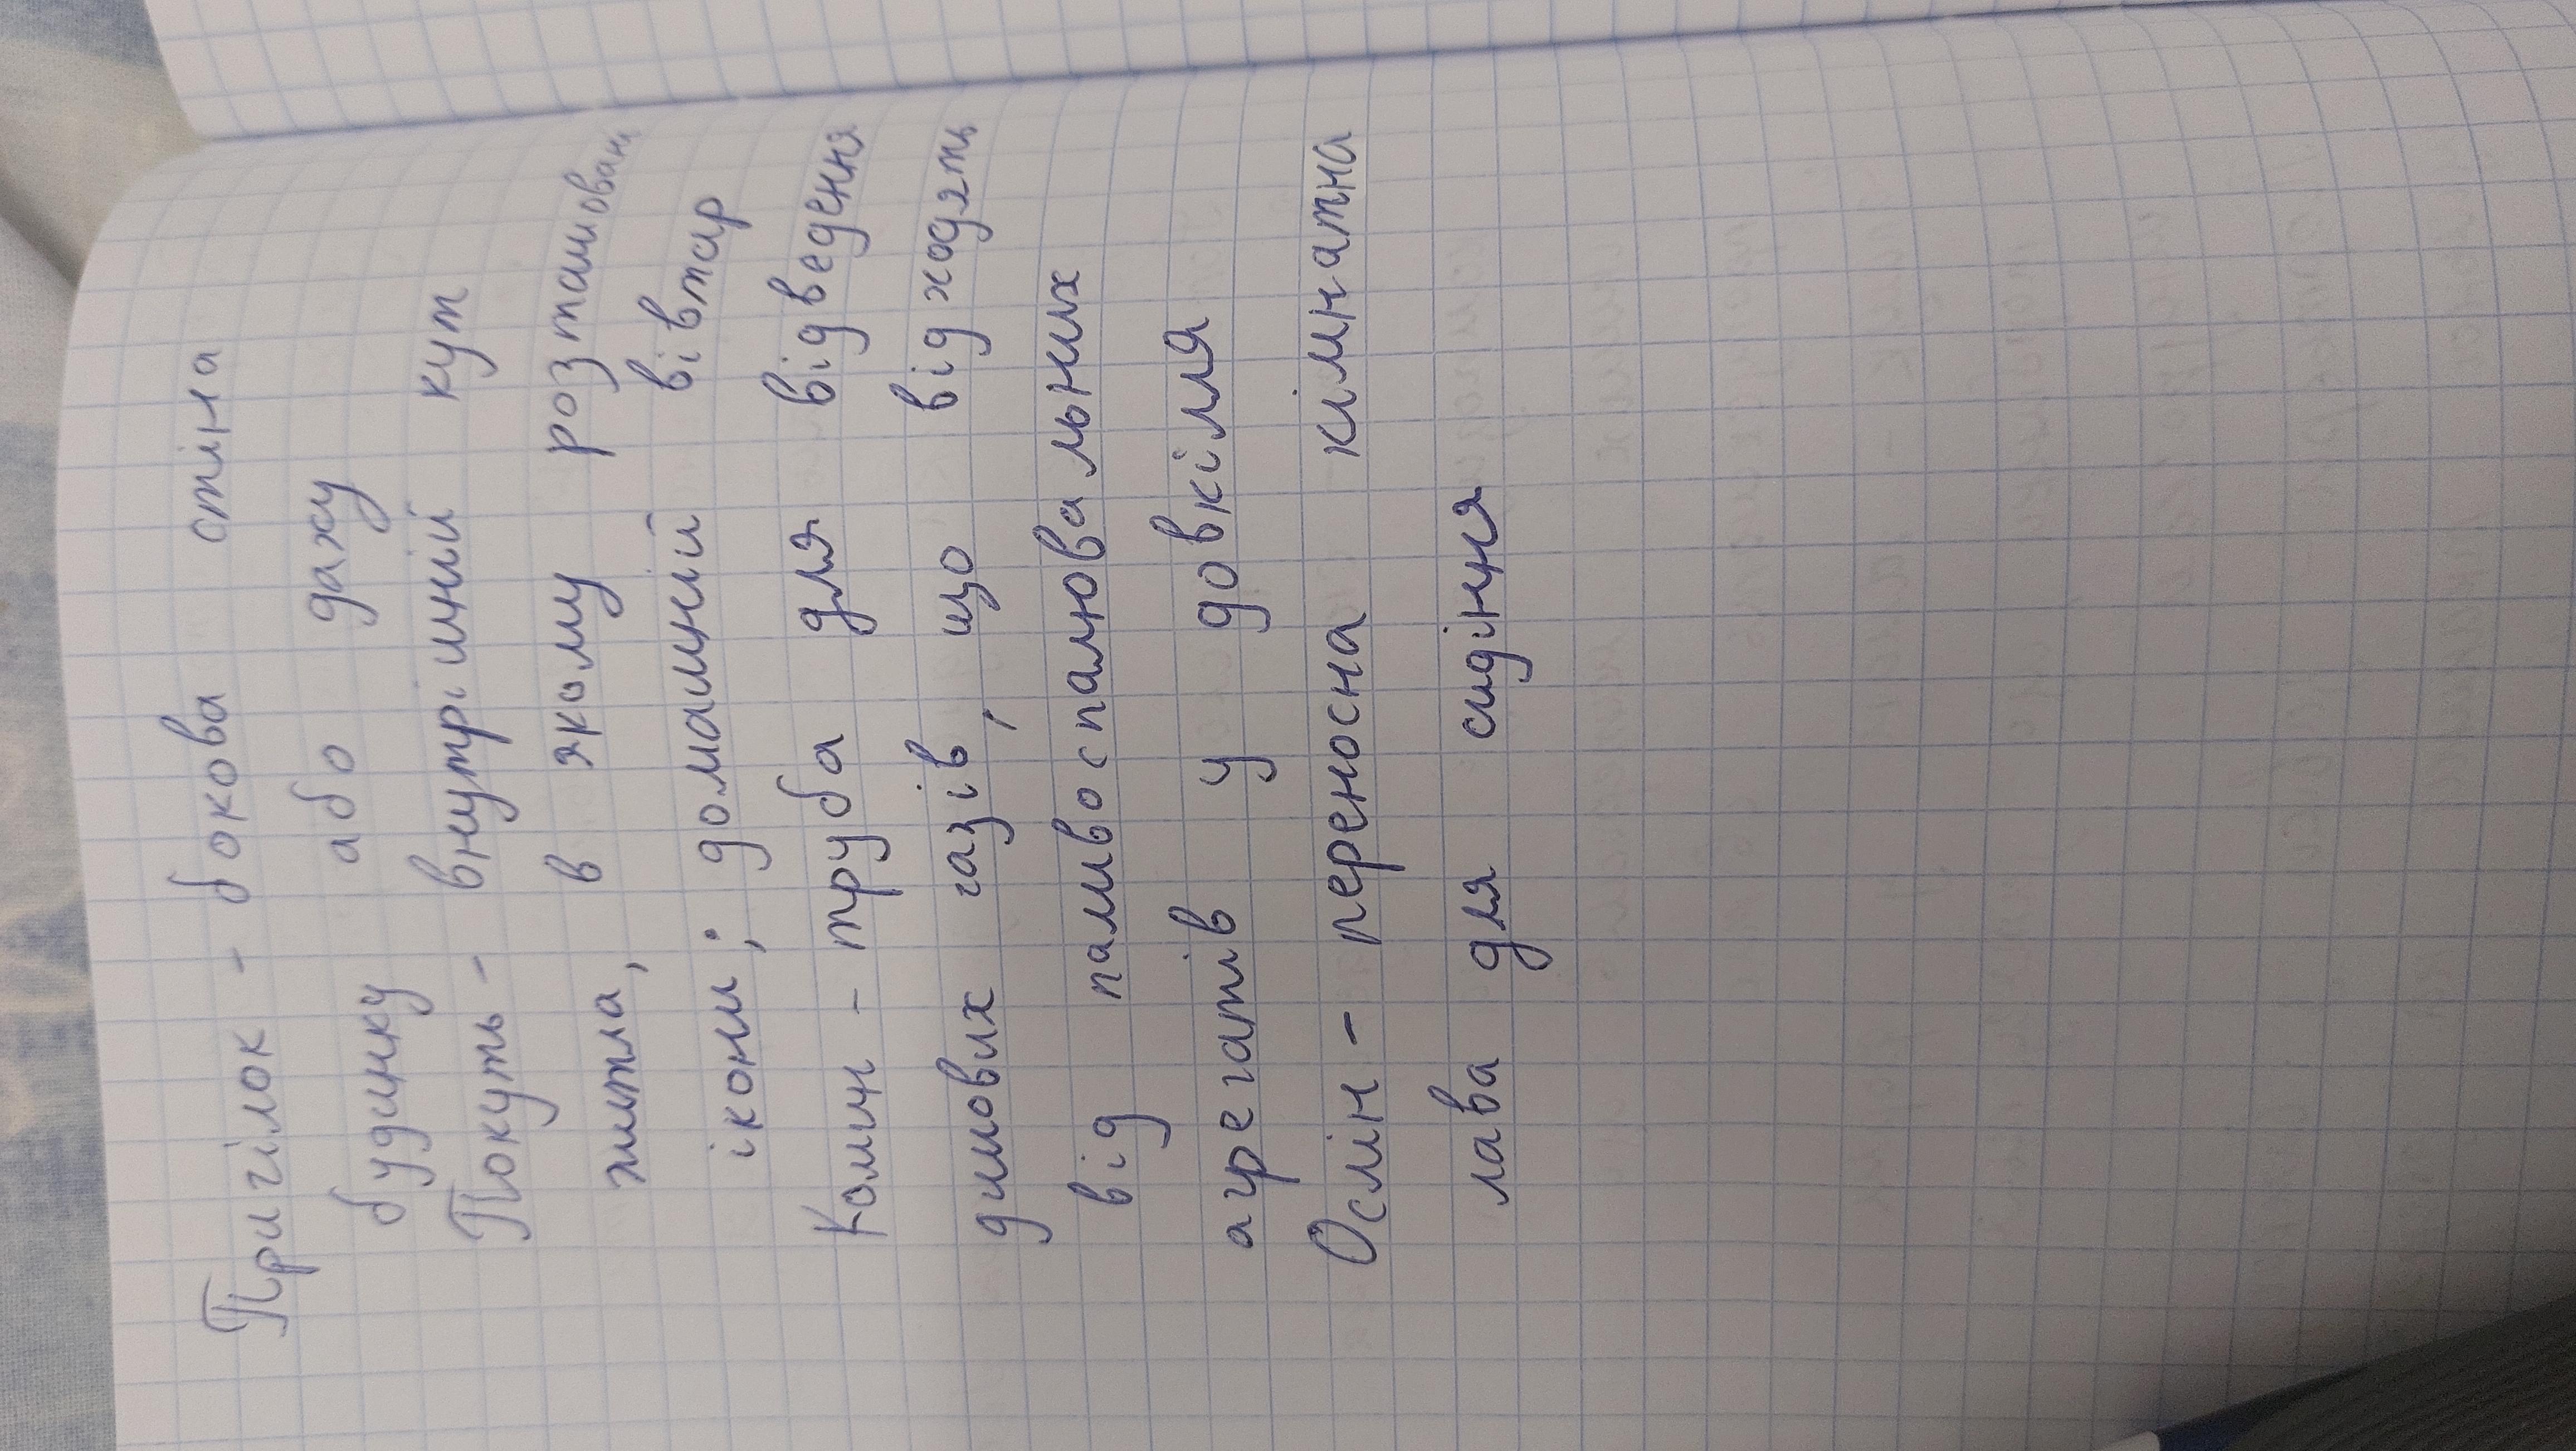 Пригілок - бокова стіна
будинку або даху
Покуть - внутрішній кут
житла, в якому розташовані
ікони; домашній вівтар
Комин - труба для відведення
димових газів, що відходять
від паливоспалювальних
агрегатів у довкілля
Ослін - переносна кімнатна
лава для сидіння